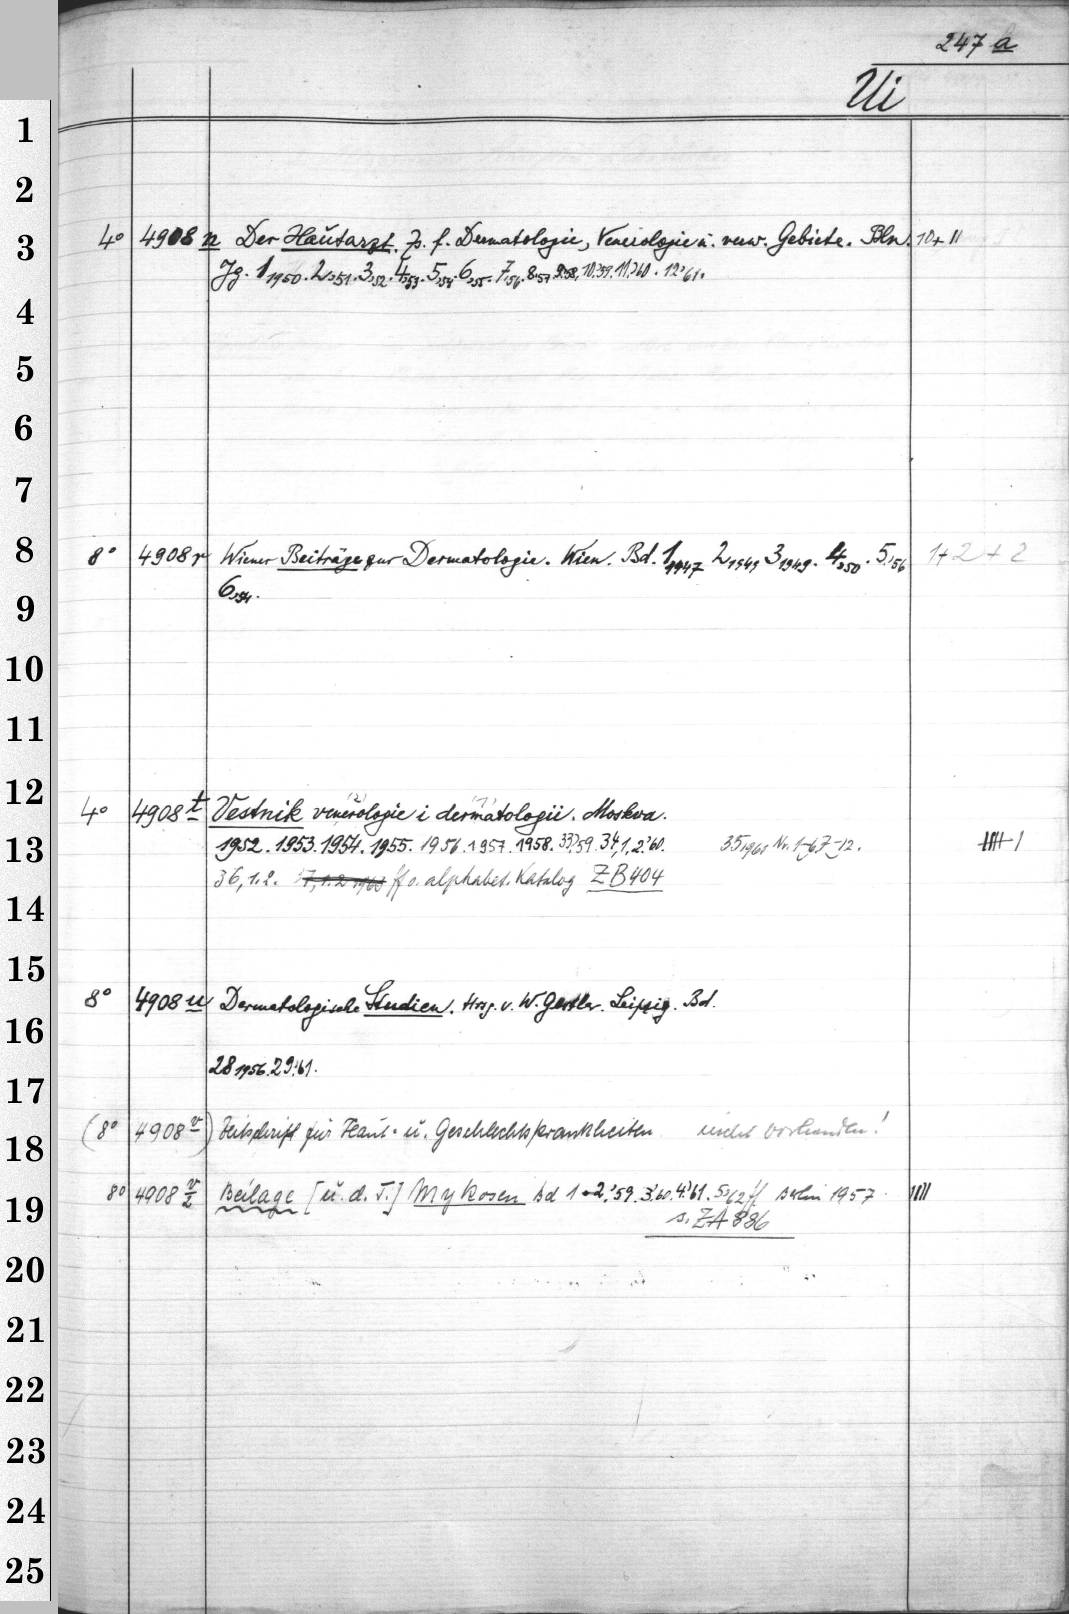 247 a
Ui
1
2
3 4° 4908 n Der Hautarzt. Zs. f. Dermatologie, Venerologie u. verw. Gebiete. Bln. 10+11
Jg. 1 1950. 2,51. 3,52. 4,53. 5,54. 6,55. 7,56. 8,57. 9,58, 10,59. 11,60. 12,61.
4
5
6
7
8 8° 4908 r Wiener Beiträge zur Dermatologie. Wien. Bd. 1 1947 2 1949 3 1949. 4,50. 5,56 1+2+2
9 6,54.
10
11
12 4° 4908 t Vestnik venerologie i dermatologii. Moskva.
(2) (1)
13 1952. 1953. 1954. 1955. 1956. 1957. 1958. 33,59. 34,1.2,'60. 35 1961 Nr. 1-6, 7-12.
36,1.2. 37,1.2 1963 ff s. alphabet. Katalog ZB 404
14
15 8° 4908 u Dermatologische Studien. Hrsg. v. W. Gertler. Leipzig. Bd.
16
28 1956. 29,'61.
17
18 (8° 4908 v) Zeitschrift für Haut- u. Geschlechtskrankheiten nicht vorhanden!
19 8° 4908 v/2 Beilage [u. d. T.] Mykosen Bd 1-2,'59. 3,'60. 4,'61. 5,'62 ff Berlin 1957.
s. ZA 886
20
21
22
23
24
25